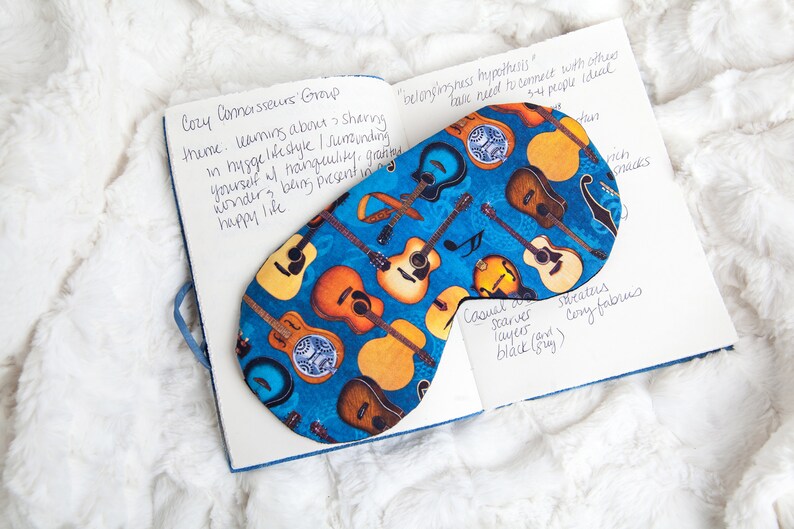 Cozy Connoisseurs' Group
theme: learning about & sharing
in hygge lifestyle / surrounding
yourself w/ tranquility, gratitude
wonder & being present in
happy life
"belongingness hypothesis"
basic need to connect with others
3-4 people ideal
rich
snacks
Casual
scarves
layers
black (and grey)
sweaters
cozy fabrics